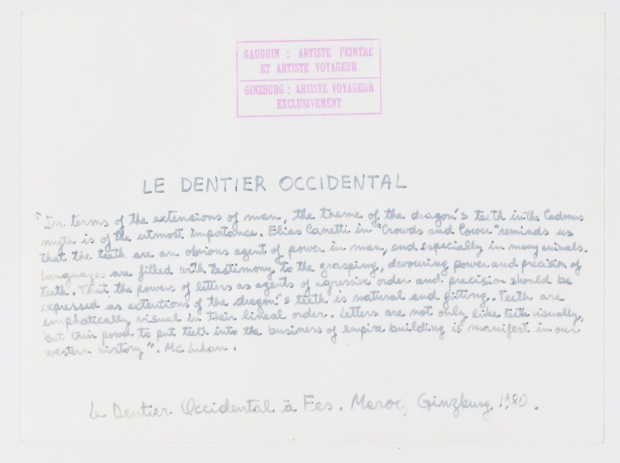 GAUGUIN : ARTISTE PEINTRE
ET ARTISTE VOYAGEUR
GINZBURG : ARTISTE VOYAGEUR
EXCLUSIVEMENT
LE DENTIER OCCIDENTAL
"In terms of the extensions of man, the theme of the dragon's teeth in the Cadmus
myth is of the utmost importance. Elias Canetti in "Crowds and Power" reminds us
that the teeth are an obvious agent of power in man, and especially in many animals.
Languages are filled with testimony to the grasping, devouring power and precision of
teeth. That the power of letters as agents of agressive order and precision should be
expressed as extentions of the dragon's teeth is natural and fitting. Teeth are
emphatically visual in their lineal order. Letters are not only like teeth visually,
but their power to put teeth into the business of empire building is manifest in our
western history". Mc Luhan.
Le Dentier Occidental à Fes. Maroc, Ginzburg 1980.